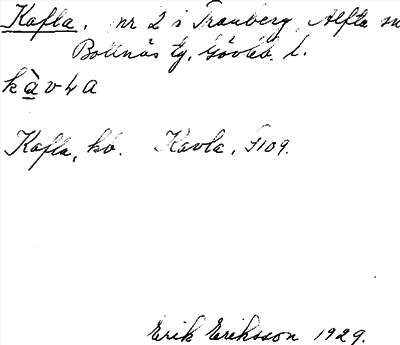 Kafla, nr 2 i Tranberg, Alfta sn
Bollnäs tg, Gävleb. l.
kàv4a
Kafla, ko. Kavla, f109.
Erik Eriksson 1929.